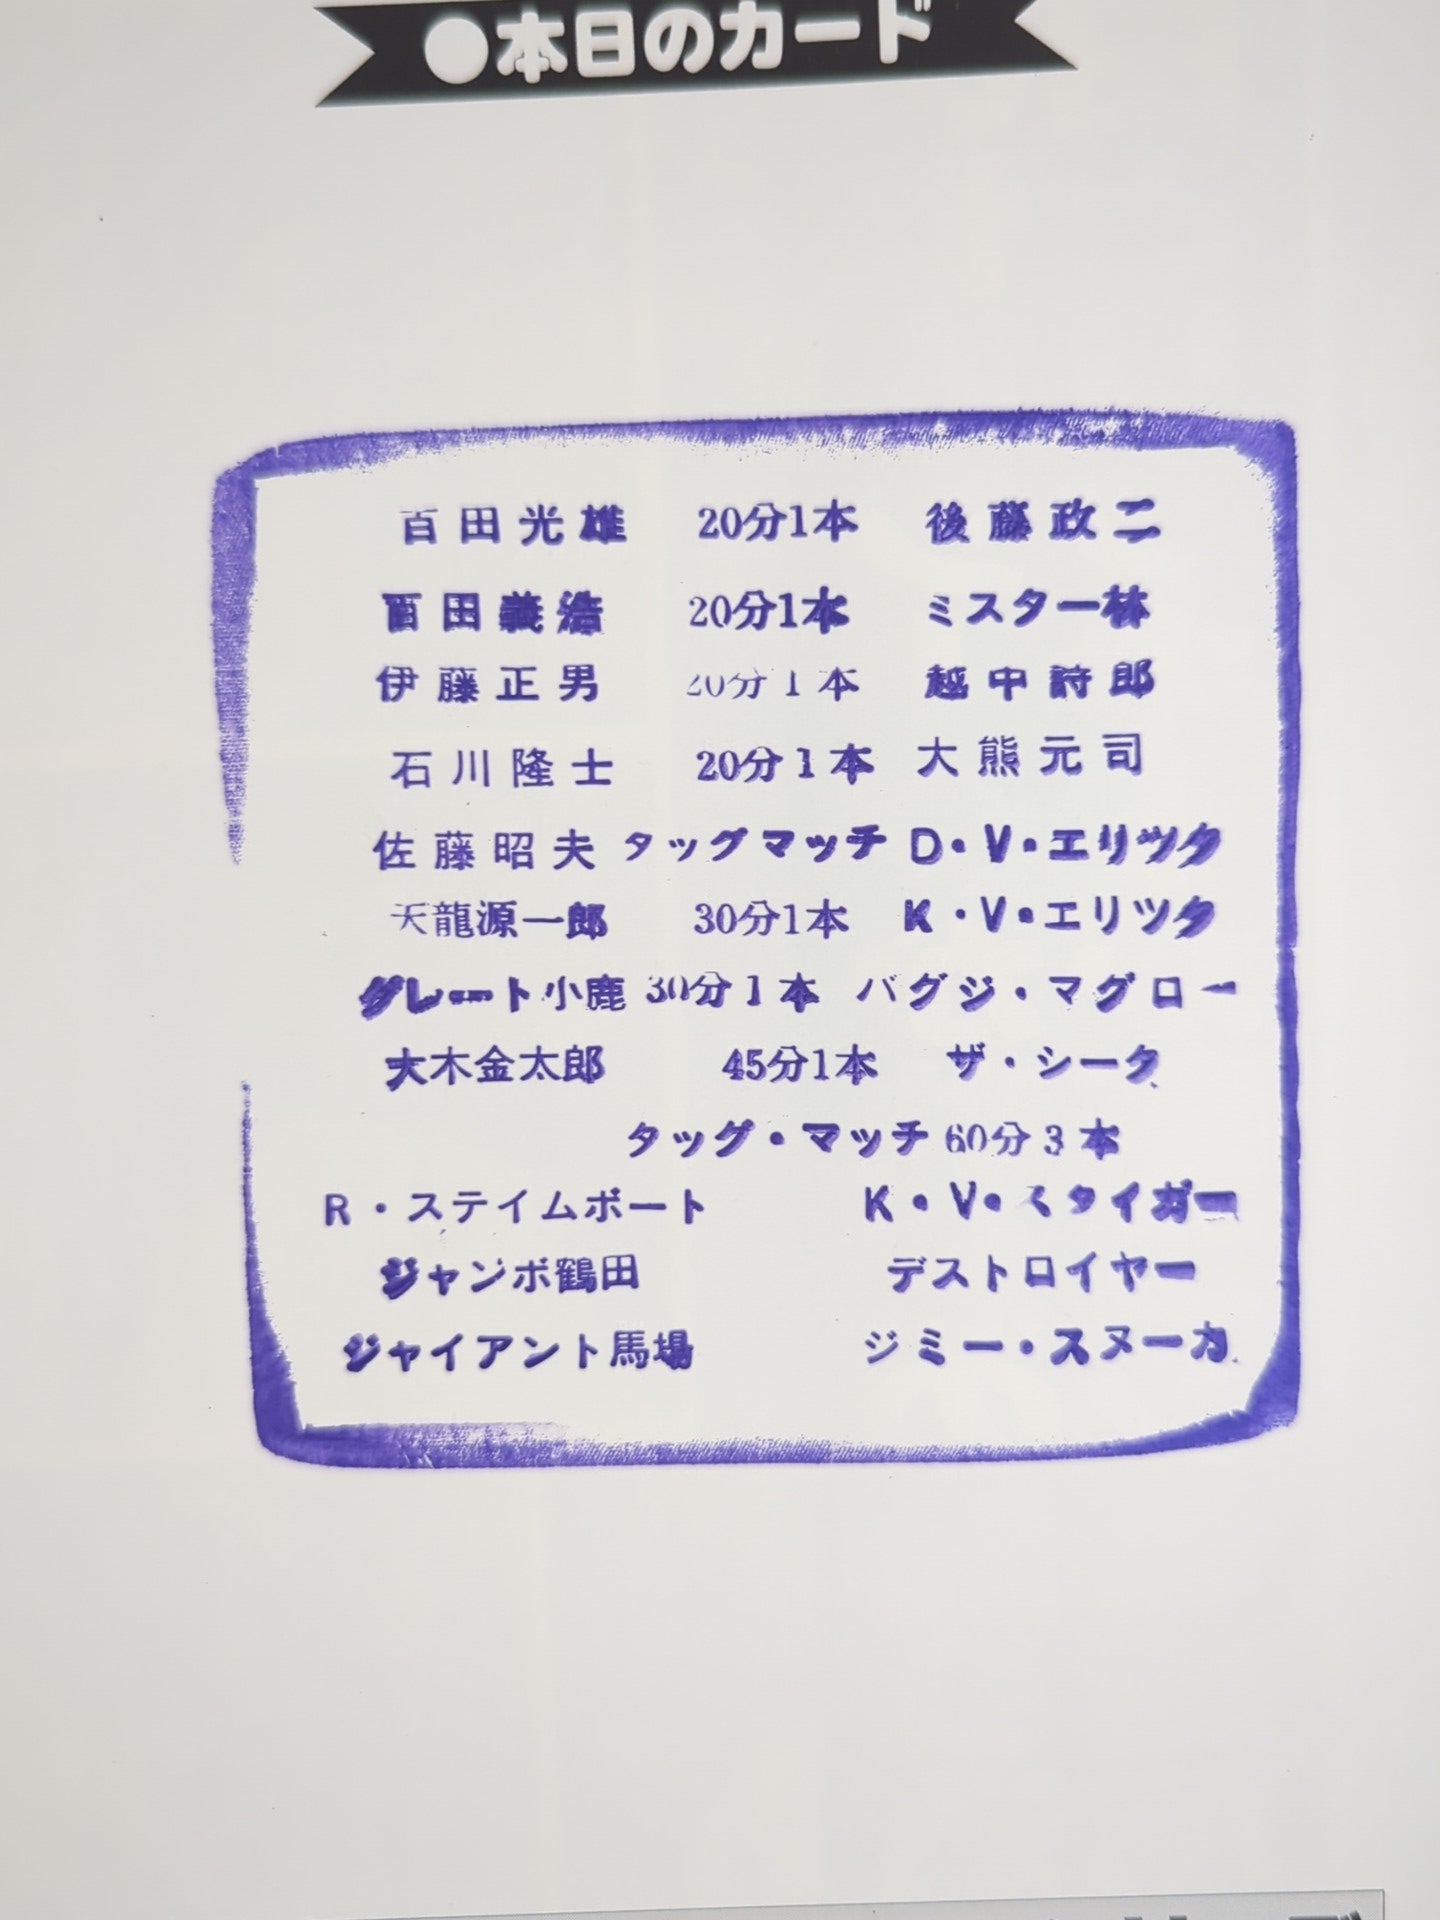 ●本日のカード
百田光雄 20分1本 後藤政二
百田義浩 20分1本 ミスター林
伊藤正男 20分1本 越中詩郎
石川隆士 20分1本 大熊元司
佐藤昭夫 タッグマッチ D・V・エリツク
天龍源一郎 30分1本 K・V・エリツク
グレート小鹿 30分1本 バグジ・マグロー
大木金太郎 45分1本 ザ・シーク
タッグ・マッチ 60分3本
R・ステイムボート K・V・スタイガー
ジャンボ鶴田 デストロイヤー
ジャイアント馬場 ジミー・スヌーカ